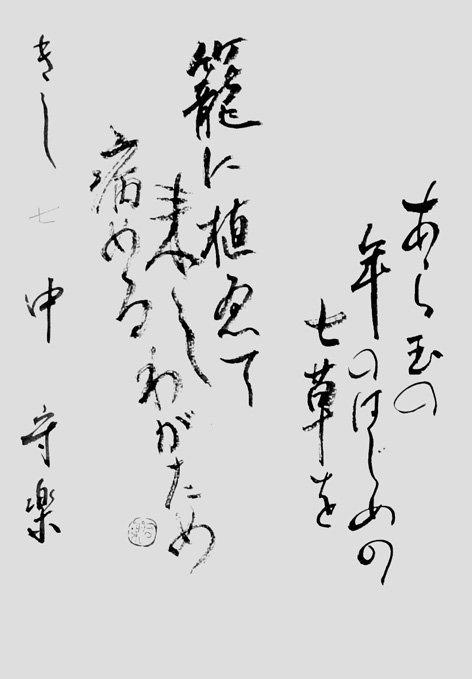 あら玉の
年のはじめの
七草を
籠に植ゑて
来し
病めるわがため
きし 七 中 守楽